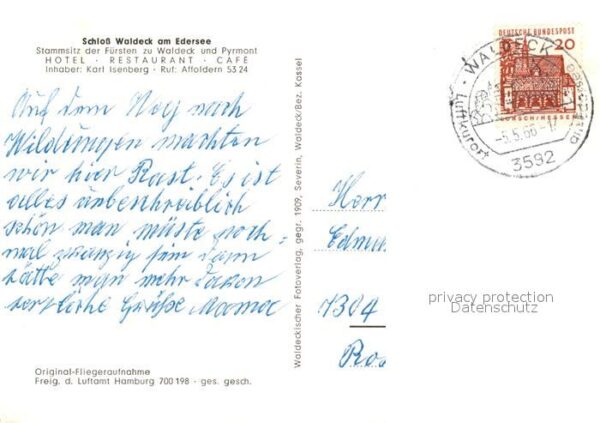 Schloß Waldeck am Edersee
Stammsitz der Fürsten zu Waldeck und Pyrmont
HOTEL · RESTAURANT · CAFÉ
Inhaber: Karl Isenberg · Ruf: Affoldern 5324
Auf dem Weg nach
Wildungen machten
wir hier Rast. Es ist
alles unbeschreiblich
schön man müste noch-
mal zwanzig sein dann
hätte man mehr davon
herzliche Grüße
Original-Fliegeraufnahme
Freig. d. Luftamt Hamburg 700198 - ges. gesch.
Waldeckischer Fotoverlag, gegr. 1909, Severin, Waldeck/Bez. Kassel
DEUTSCHE BUNDESPOST
20
LORSCH/HESSEN
WALDECK
Luftkurort
-5.5.66-17
3592
Herr
Edmu
7304
privacy protection
Datenschutz